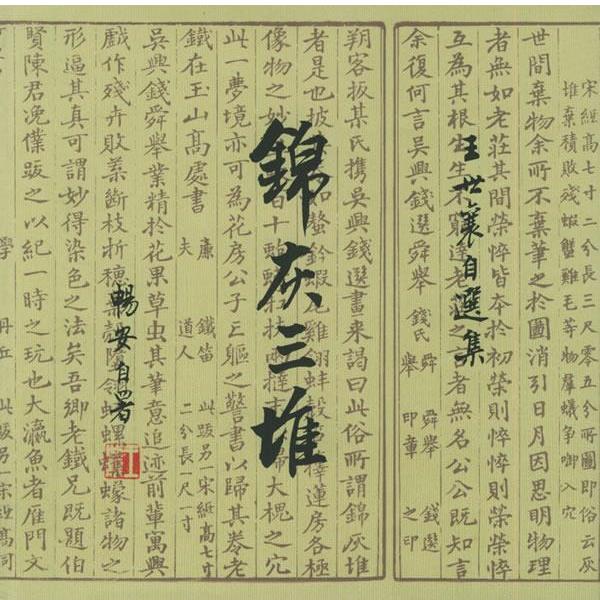 錦灰三堆
王世襄自選集
暢安自署
宋紙高七寸二分長三尺零五分所圖即俗云灰
堆棄積敗殘蝦蟹雞毛等物群蟻爭啣入穴
世間棄物余所不棄筆之於圖消引日月因思明物理
者無如老莊其間榮悴皆本於初榮則悴悴則榮榮悴
互為其根生生不窮達老之者無名公公既知言
余復何言吳興錢選舜舉 錢氏 舜舉 舜舉印章 錢選之印
朔客扳某氏携吳興錢選畫來謁曰此俗所謂錦灰堆
者是也披如螯鈐蝦尾雞翎蚌殼籜蓮房各極
像物之妙者十歸大槐之穴
此一夢境亦可為花房公子三軀之警書以歸其券老
鐵在玉山高處書 廉夫 鐵笛道人 此跋另一宋紙高七寸二分長一尺一寸
吳興錢舜舉業精於花果草虫其筆意追迹前輩寓興
戲作殘卉敗葉斷枝折穗螺蠓諸物之
形逼其真可謂妙得染色之法矣吾鄉老鐵兄既題伯
賢陳君俛僕跋之以紀一時之玩也大瀛魚者雁門文
學 丹丘 此跋另一宋紙高同